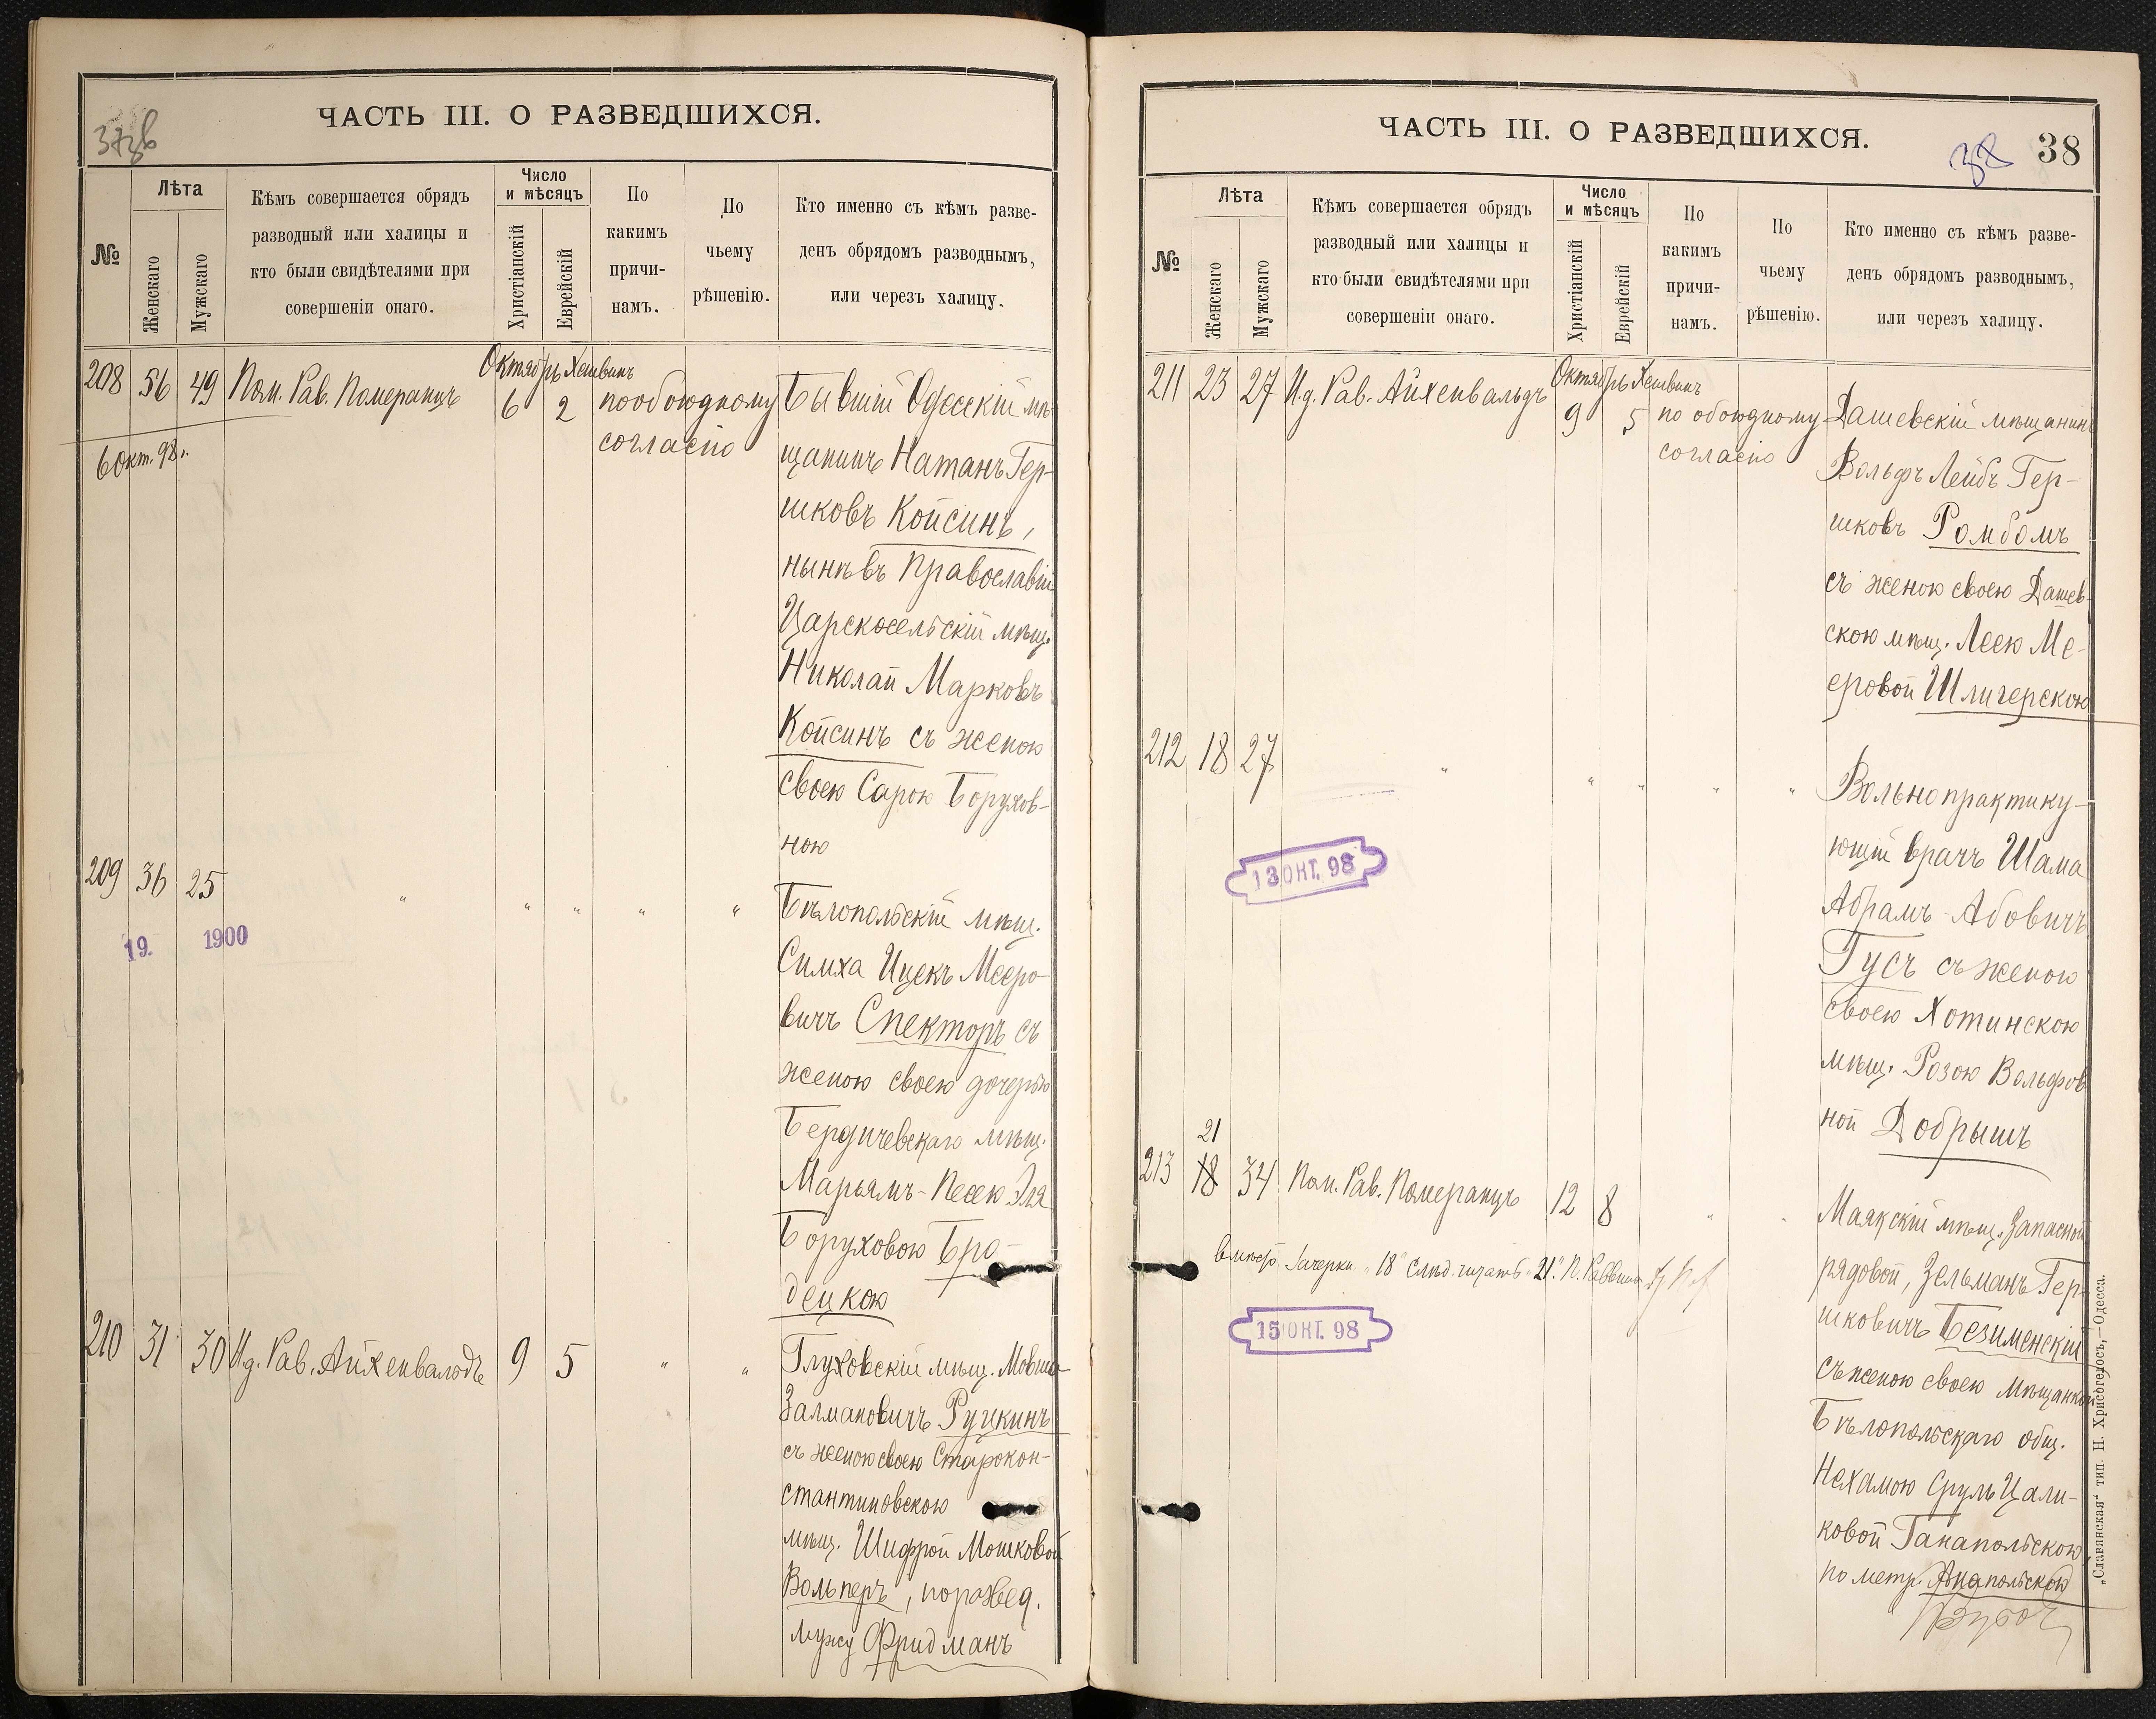 ЧАСТЬ III. О РАЗВЕДШИХСЯ.
№
Лѣта
Женскаго
Мужскаго
Кѣмъ совершается обрядъ
разводный или халицы и
кто были свидѣтелями при
совершеніи онаго.
Число
и мѣсяцъ
Христіанскій
Еврейскій
По
какимъ
причи-
намъ.
По
чьему
рѣшенію.
Кто именно съ кѣмъ разве-
денъ обрядомъ разводнымъ,
или черезъ халицу.
208 56 49 Пом. Рав. Померанцъ
Октябрь Хешвинъ
6 2
по обоюдному
согласію
6 окт. 98 г.
Бывшій Одесскій мѣ-
щанинъ Натанъ Гер-
шковъ Койсинъ,
нынѣ въ Православіи
Царскосельскій мѣщ.
Николай Марковъ
Койсинъ съ женою
своею Сарою Борухов-
ною
209 36 25 " " " " "
19. 1900
Бѣлопольскій мѣщ.
Симха Ицекъ Мееро-
вичъ Спекторъ съ
женою своею дочерью
Бердичевскаго мѣщ.
Марьямъ-Песею Эля
Боруховою Бро-
децкою
210 31 30 И.д. Рав. Айхенвальдъ 9 5 " "
Глуховскій мѣщ. Мовша
Залмановичъ Рушкинъ
съ женою своею Старокон-
стантиновскою
мѣщ. Шифрой Мошковой
Вольперъ, по развед.
мужу Фридманъ
ЧАСТЬ III. О РАЗВЕДШИХСЯ.
38 38
№
Лѣта
Женскаго
Мужскаго
Кѣмъ совершается обрядъ
разводный или халицы и
кто были свидѣтелями при
совершеніи онаго.
Число
и мѣсяцъ
Христіанскій
Еврейскій
По
какимъ
причи-
намъ.
По
чьему
рѣшенію.
Кто именно съ кѣмъ разве-
денъ обрядомъ разводнымъ,
или черезъ халицу.
211 23 27 И.д. Рав. Айхенвальдъ
Октябрь Хешвинъ
9 5
по обоюдному
согласію
Дашевскій мѣщанинъ
Вольфъ Лейбъ Гер-
шковъ Ромбомъ
съ женою своею Дашев-
скою мѣщ. Леею Ме-
еровой Шлигерскою
212 18 27 " " " " "
13 ОКТ. 98
Вольнопрактику-
ющій врачъ Шама
Абрамъ-Абовичъ
Гусъ съ женою
своею Хотинскою
мѣщ. Розою Вольфов
ной Добрышъ
21
213 18 34 Пом. Рав. Померанцъ 12 8 " "
вмѣсто зачеркн. "18" слѣд. читать "21". П. Раввина
15 ОКТ. 98
Маякскій мѣщ. Запасной
рядовой, Зельманъ Гер-
шковичъ Безименскій
съ женою своею мѣщанкой
Бѣлопольскаго общ.
Нехамою Сруль Цали-
ковой Ганапольскою,
по метр. Анапольской
„Славянская" тип. Н. Хрисогелосъ,—Одесса.